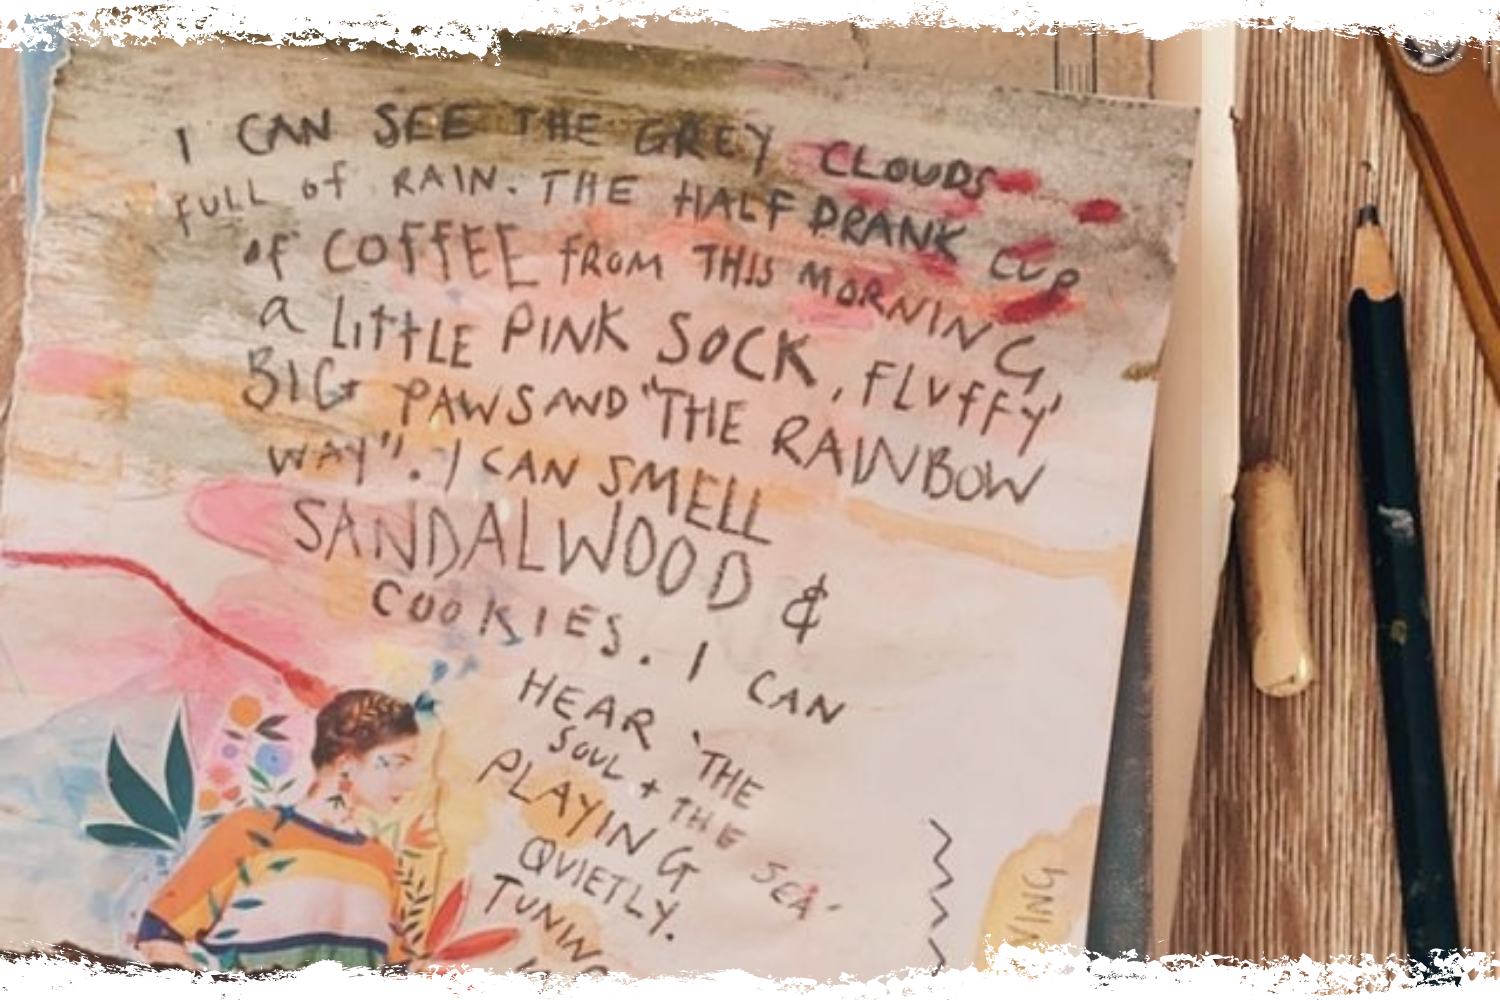 I CAN SEE THE GREY CLOUDS
FULL of RAIN. THE HALF DRANK CUP
of COFFEE FROM THIS MORNING,
a LITTLE PINK SOCK, FLUFFY
BIG PAWS AND "THE RAINBOW
WAY". I CAN SMELL
SANDALWOOD &
COOKIES. I CAN
HEAR 'THE
SOUL + THE SEA'
PLAYING
QUIETLY.
TUNIN
YING